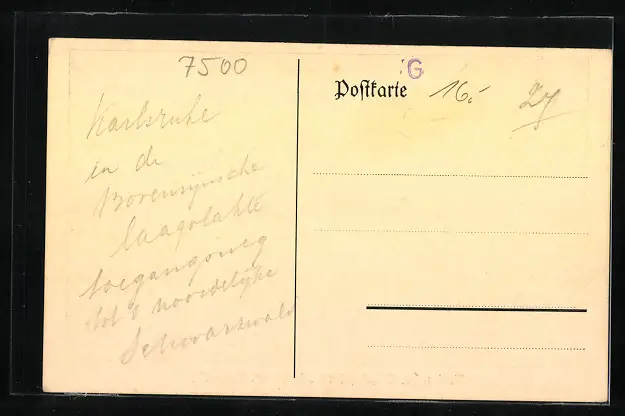 7500
G
Postkarte 16.- 24
Karlsruhe
in de
Bovenrijnsche
laagvlakte
toegangsweg
tot d noordelijke
Schwarzwald